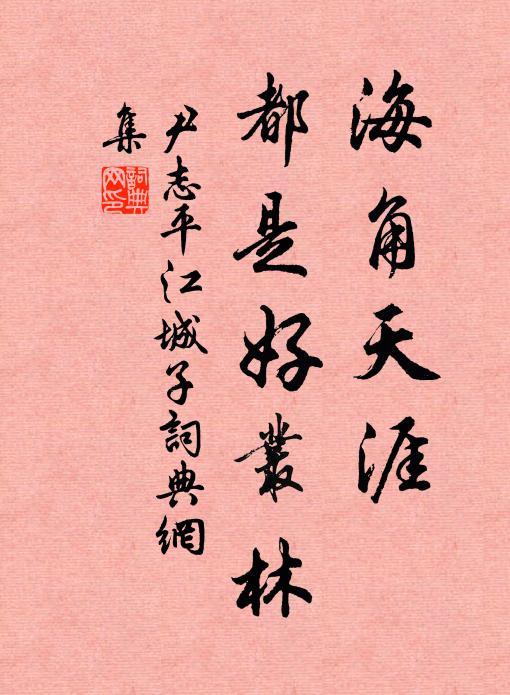 海角天涯
都是好叢林
尹志平江城子詞典網
集
詞典网印